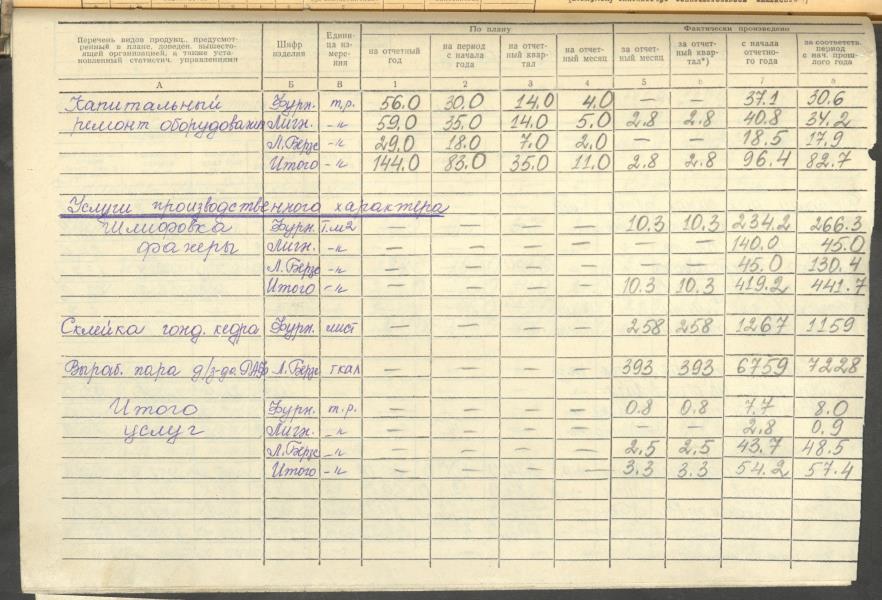 По плану Фактически произведено
Перечень видов продукц., предусмот-
ренный в плане, доведен. вышесто-
ящей организацией, а также уста-
новленный статистич. управлениями
Шифр изделия
Едини-
ца из-
мере-
ния
на отчетный год
на период с начала года
на отчет-
ный квар-
тал
на отчет-
ный месяц
за отчет-
ный месяц
за отчет-
ный квар-
тал*)
с начала отчетно-
го года
за соответств. период с нач. прош-
лого года
А Б В 1 2 3 4 5 6 7 8
Капитальный Фурн. т.р. 56.0 30.0 14.0 4.0 — — 37.1 30.6
ремонт оборудования Лигн. -"- 59.0 35.0 14.0 5.0 2.8 2.8 40.8 34.2
Л.Берзе -"- 29.0 18.0 7.0 2.0 — — 18.5 17.9
Итого -"- 144.0 83.0 35.0 11.0 2.8 2.8 96.4 82.7
Услуги производственного характера
Шлифовка Фурн. т.м2 — — — — 10.3 10.3 234.2 266.3
фанеры Лигн. -"- — — — — — — 140.0 45.0
Л.Берзе -"- — — — — — — 45.0 130.4
Итого -"- — — — — 10.3 10.3 419.2 441.7
Склейка гонд. кедра Фурн. лист — — — — 258 258 1267 1159
Выраб. пара д/з-да Л.Берзе гкал — — — — 393 393 6759 7228
Итого Фурн. т.р. — — — — 0.8 0.8 7.7 8.0
услуг Лигн. -"- — — — — — — 2.8 0.9
Л.Берзе -"- — — — — 2.5 2.5 43.7 48.5
Итого -"- — — — — 3.3 3.3 54.2 57.4